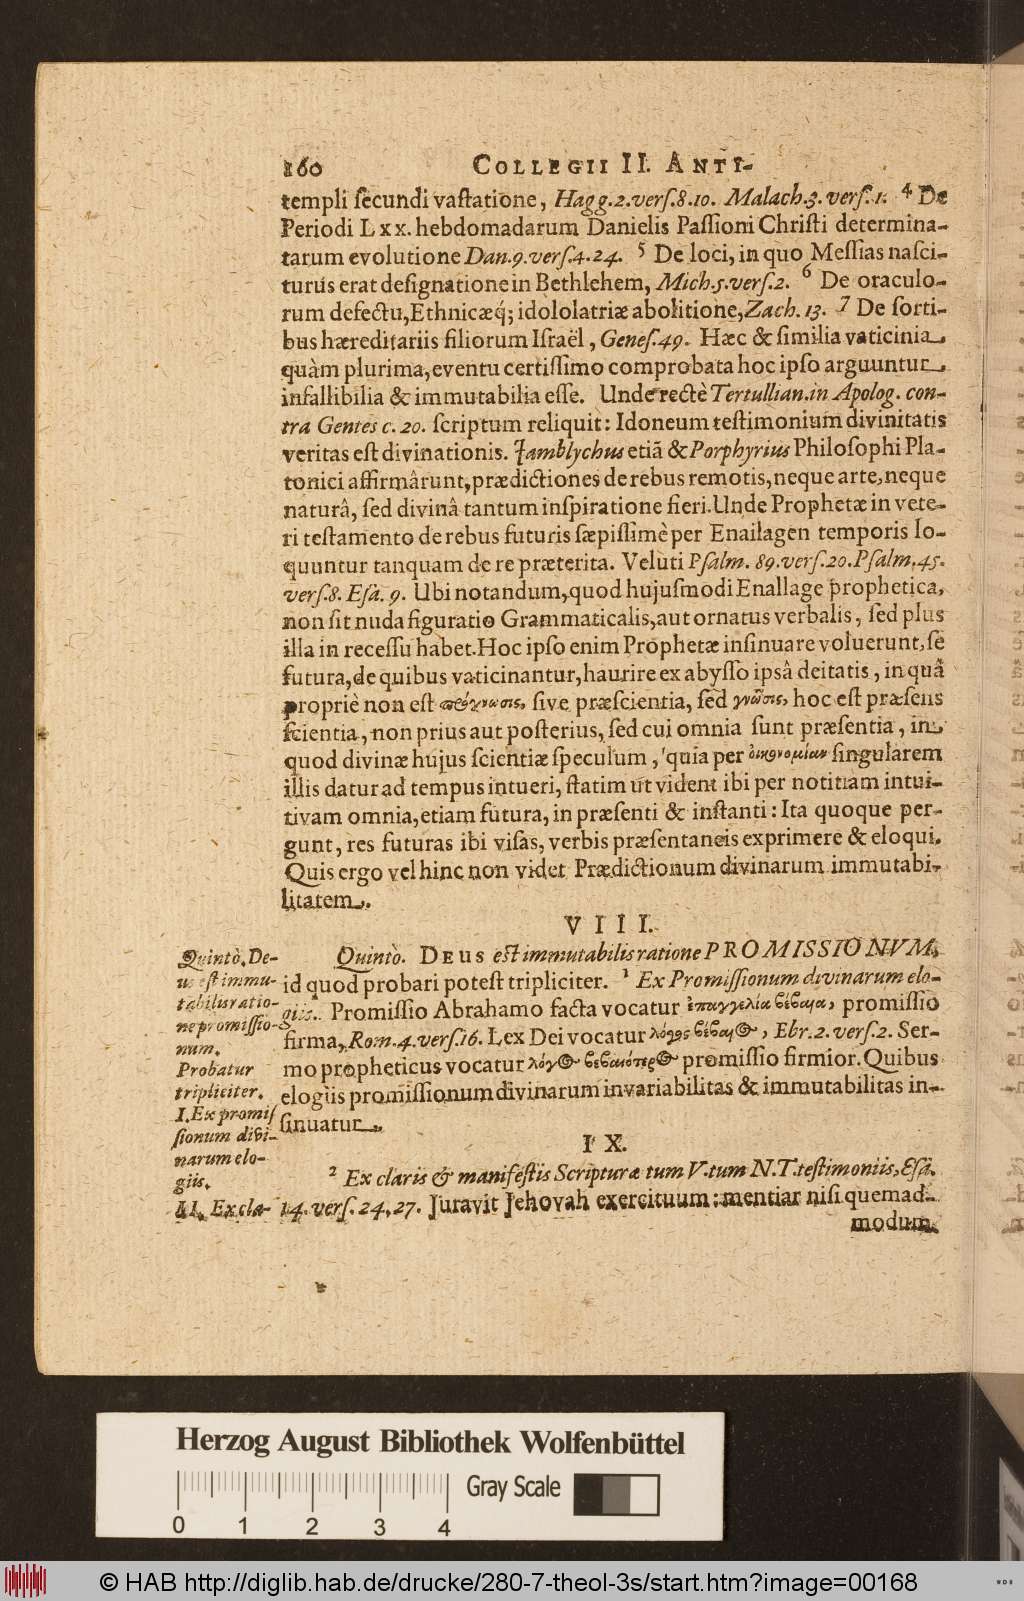 160 COLLEGII II. ANTI-
templi secundi vastatione, Hagg.2.vers.8.10. Malach.3.vers.1. 4 De
Periodi Lxx. hebdomadarum Danielis Passioni Christi determina-
tarum evolutione Dan.9.vers.4.24. 5 De loci, in quo Messias nasci-
turus erat designatione in Bethlehem, Mich.5.vers.2. 6 De oraculo-
rum defectu, Ethnicæq́; idololatriæ abolitione, Zach. 13. 7 De sorti-
bus hæreditariis filiorum Israël, Genes.49. Hæc & similia vaticinia
quàm plurima, eventu certissimo comprobata hoc ipso arguuntur
infallibilia & immutabilia esse. Unde rectè Tertullian.in Apolog. con-
tra Gentes c. 20. scriptum reliquit: Idoneum testimonium divinitatis
veritas est divinationis. Jamblychus etiã & Porphyrius Philosophi Pla-
tonici affirmârunt, prædictiones de rebus remotis, neque arte, neque
naturâ, sed divinâ tantum inspiratione fieri. Unde Prophetæ in vete-
ri testamento de rebus futuris sæpissimè per Enallagen temporis lo-
quuntur tanquam de re præterita. Veluti Psalm. 89.vers.20. Psalm.45.
vers.8. Esa. 9. Ubi notandum, quod hujusmodi Enallage prophetica,
non sit nuda figuratio Grammaticalis, aut ornatus verbalis, sed plus
illa in recessu habet. Hoc ipso enim Prophetæ insinuare voluerunt, se
futura, de quibus vaticinantur, haurire ex abysso ipsâ deitatis, in quâ
propriè non est πρόγνωσις, sive præscientia, sed γνῶσις, hoc est præsens
scientia, non prius aut posterius, sed cui omnia sunt præsentia, in
quod divinæ hujus scientiæ speculum, quia per οἰκονομίαν singularem
illis datur ad tempus intueri, statim ut vident ibi per notitiam intui-
tivam omnia, etiam futura, in præsenti & instanti: Ita quoque per-
gunt, res futuras ibi visas, verbis præsentaneis exprimere & eloqui.
Quis ergo vel hinc non videt Prædictionum divinarum immutabi-
litatem.
VIII.
Quintò. DEUS est immutabilis ratione PROMISSIONVM,
id quod probari potest tripliciter. 1 Ex Promissionum divinarum elo-
giis. Promissio Abrahamo facta vocatur ἐπαγγελία βέβαια, promissio
firma, Rom.4.vers.16. Lex Dei vocatur λόγος βέβαιος, Ebr.2.vers.2. Ser-
mo propheticus vocatur λόγος βεβαιότερος promissio firmior. Quibus
elogiis promissionum divinarum invariabilitas & immutabilitas in-
sinuatur.
Quintò. De-
us est immu-
tabilis ratio-
ne promissio-
num.
Probatur
tripliciter.
I. Ex promis-
sionum divi-
narum elo-
giis.
II. Ex cla-
IX.
2 Ex claris & manifestis Scripturæ tum V. tum N.T. testimoniis, Esa.
14. vers. 24, 27. Juravit Jehovah exercituum: mentiar nisi quemad-
modum
Herzog August Bibliothek Wolfenbüttel
0 1 2 3 4
Gray Scale
© HAB http://diglib.hab.de/drucke/280-7-theol-3s/start.htm?image=00168